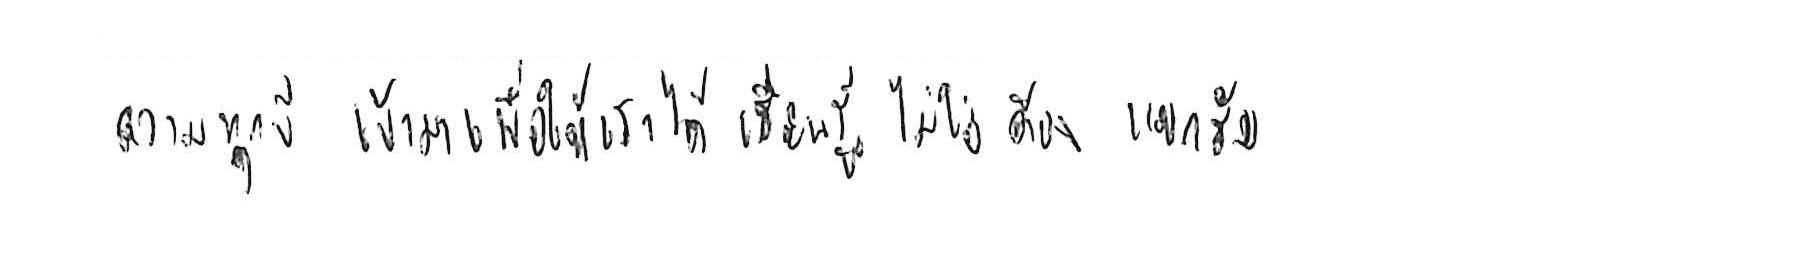 ความทุกข์ เข้ามาเพื่อให้เราได้ เรียนรู้ ไม่ใช่ ต้อง แบกรับ